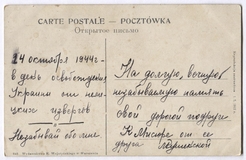 CARTE POSTALE — POCZTÓWKA
Открытое письмо
24 октября 1944 г
в день освобождения
Украины от неме
цких извергов
Незабывай обо мне.
На долгую, вечную
незабываемую память
моей дорогой подруге
от ее
друга